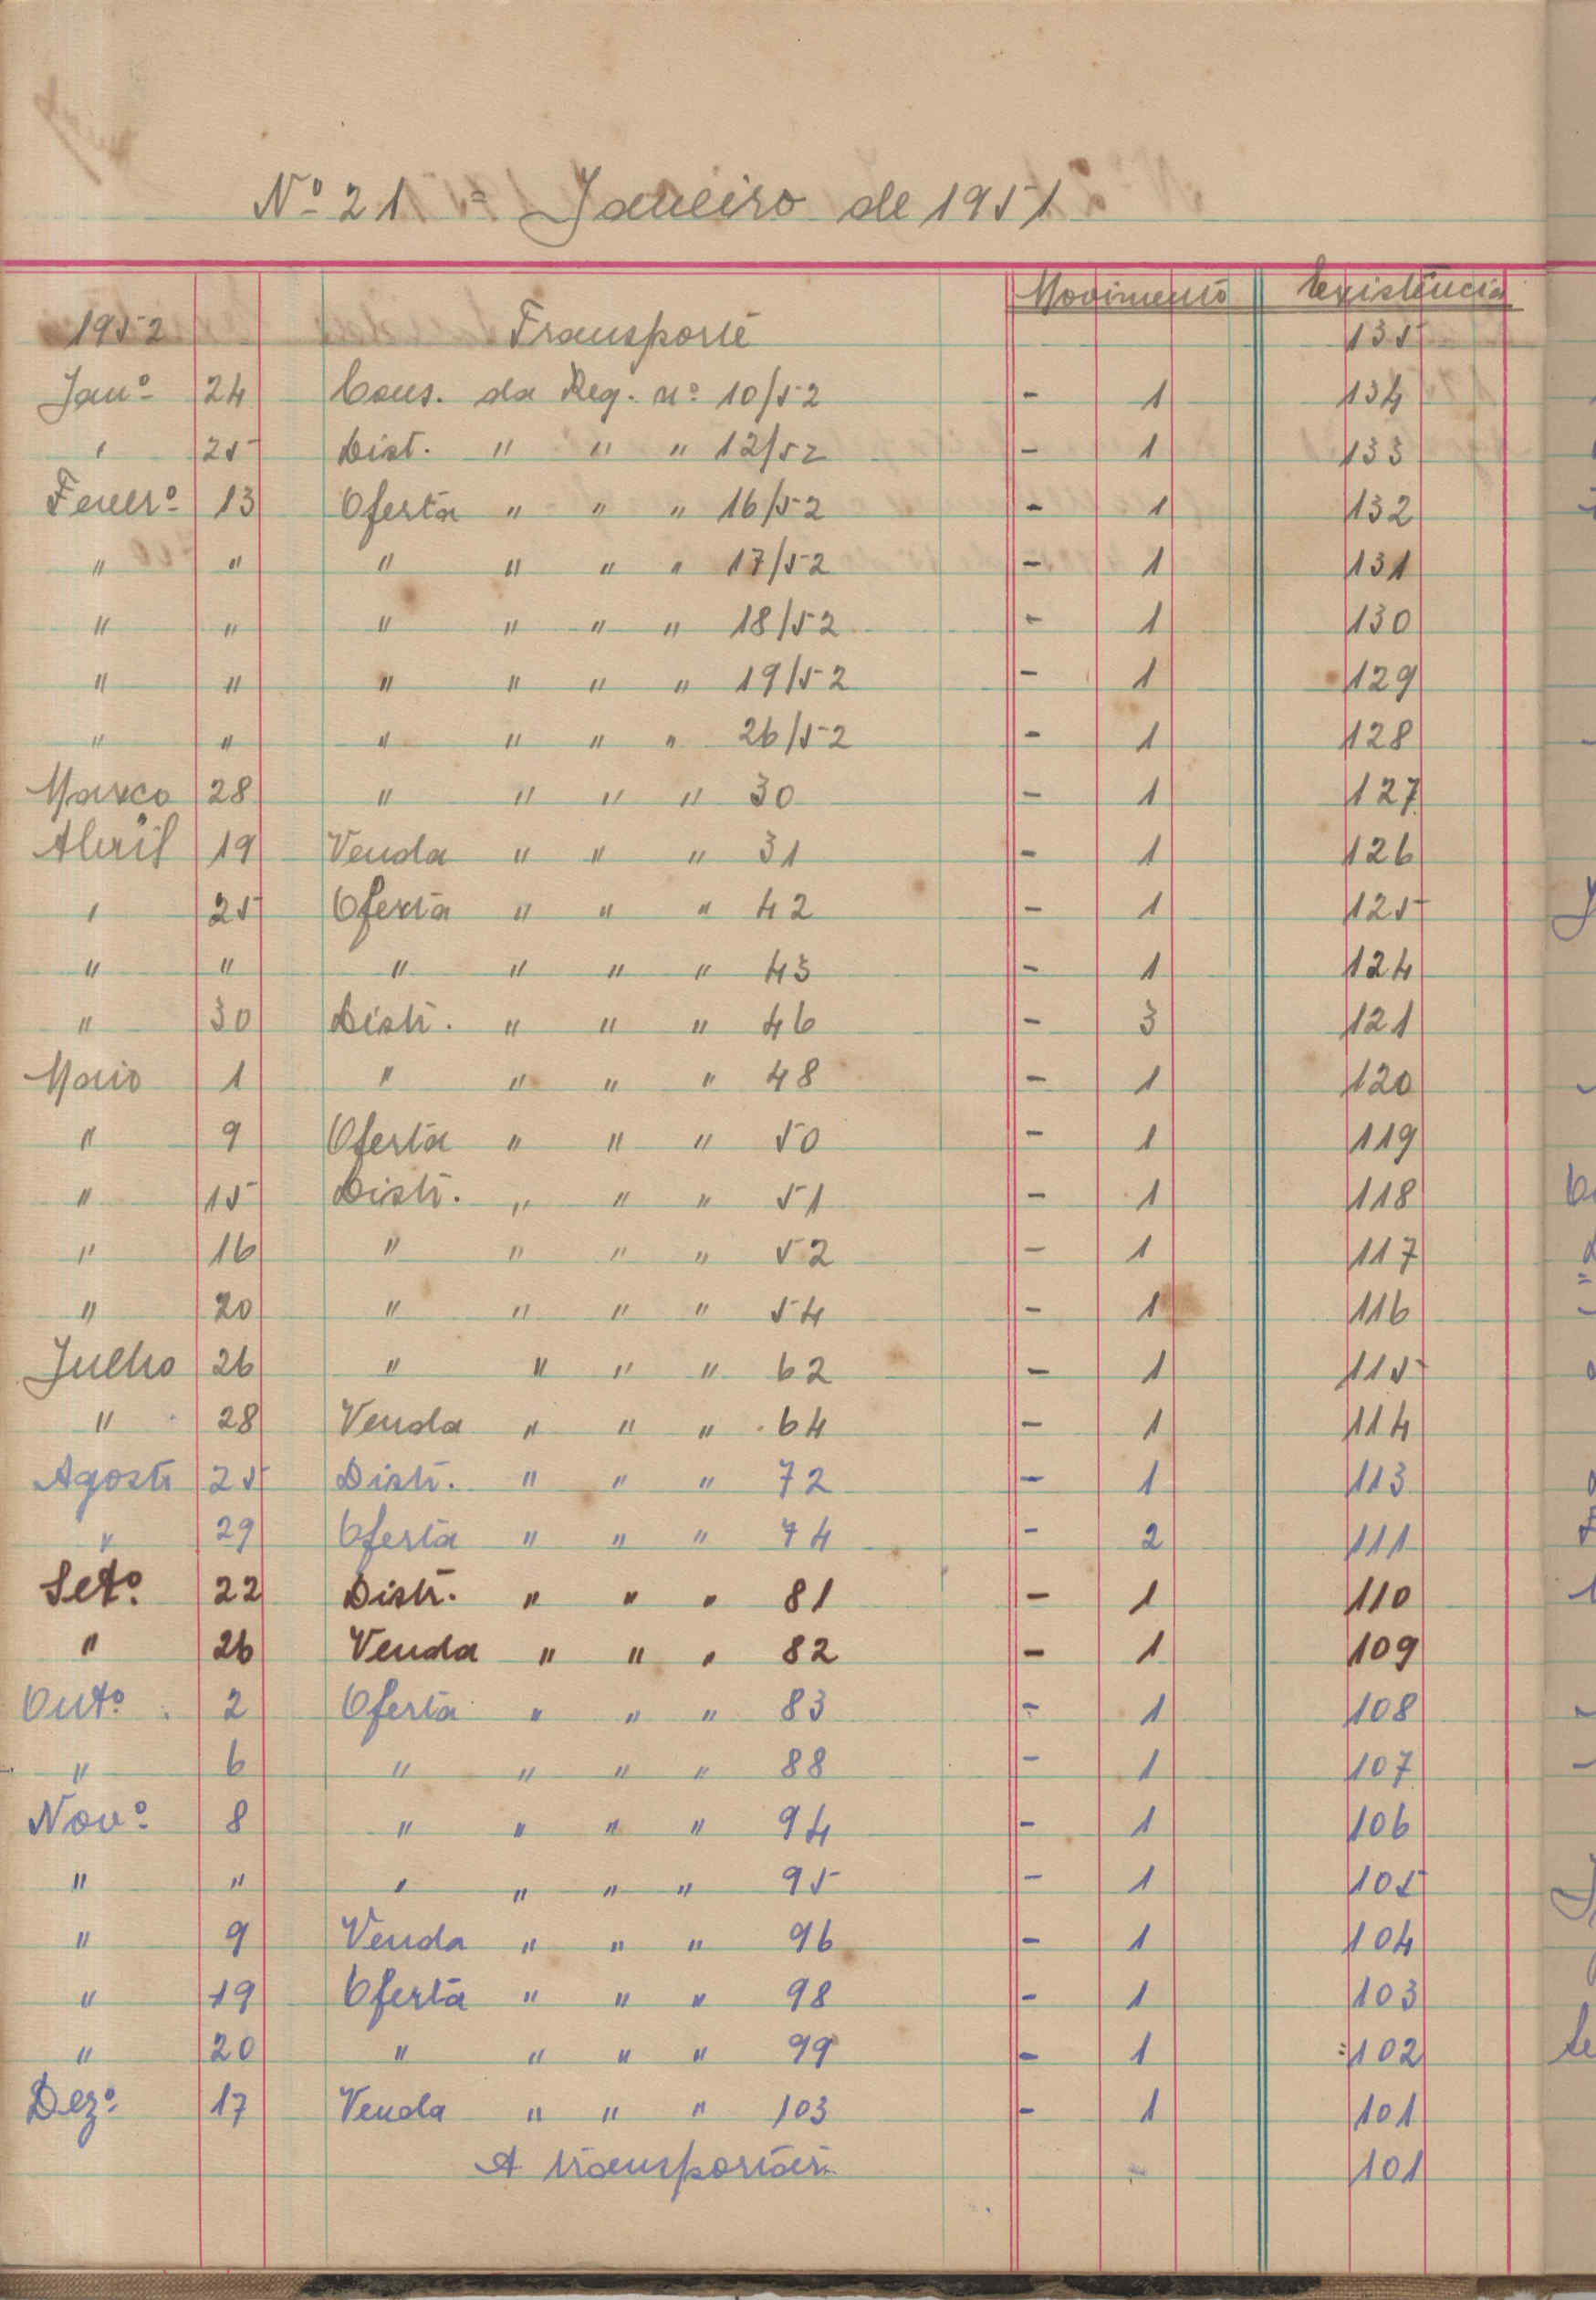 Nº 21 = Janeiro de 1951
Movimento Existência
1952 Transporte 135
Janº 24 Cons. da Reg. nº 10/52 - 1 134
" 25 Dist. " " " 12/52 - 1 133
Feverº 13 Oferta " " " 16/52 - 1 132
" " " " " " 17/52 - 1 131
" " " " " " 18/52 - 1 130
" " " " " " 19/52 - 1 129
" " " " " " 26/52 - 1 128
Março 28 " " " " 30 - 1 127
Abril 19 Venda " " " 31 - 1 126
" 25 Oferta " " " 42 - 1 125
" " " " " " 43 - 1 124
" 30 Distr. " " " 46 - 3 121
Maio 1 " " " " 48 - 1 120
" 9 Oferta " " " 50 - 1 119
" 15 Distr. " " " 51 - 1 118
" 16 " " " " 52 - 1 117
" 20 " " " " 54 - 1 116
Julho 26 " " " " 62 - 1 115
" 28 Venda " " " 64 - 1 114
Agosto 25 Distr. " " " 72 - 1 113
" 29 Oferta " " " 74 - 2 111
Setº 22 Distr. " " " 81 - 1 110
" 26 Venda " " " 82 - 1 109
Outº 2 Oferta " " " 83 - 1 108
" 6 " " " " 88 - 1 107
Novº 8 " " " " 94 - 1 106
" " " " " " 95 - 1 105
" 9 Venda " " " 96 - 1 104
" 19 Oferta " " " 98 - 1 103
" 20 " " " " 99 - 1 102
Dezº 17 Venda " " " 103 - 1 101
A transportar 101